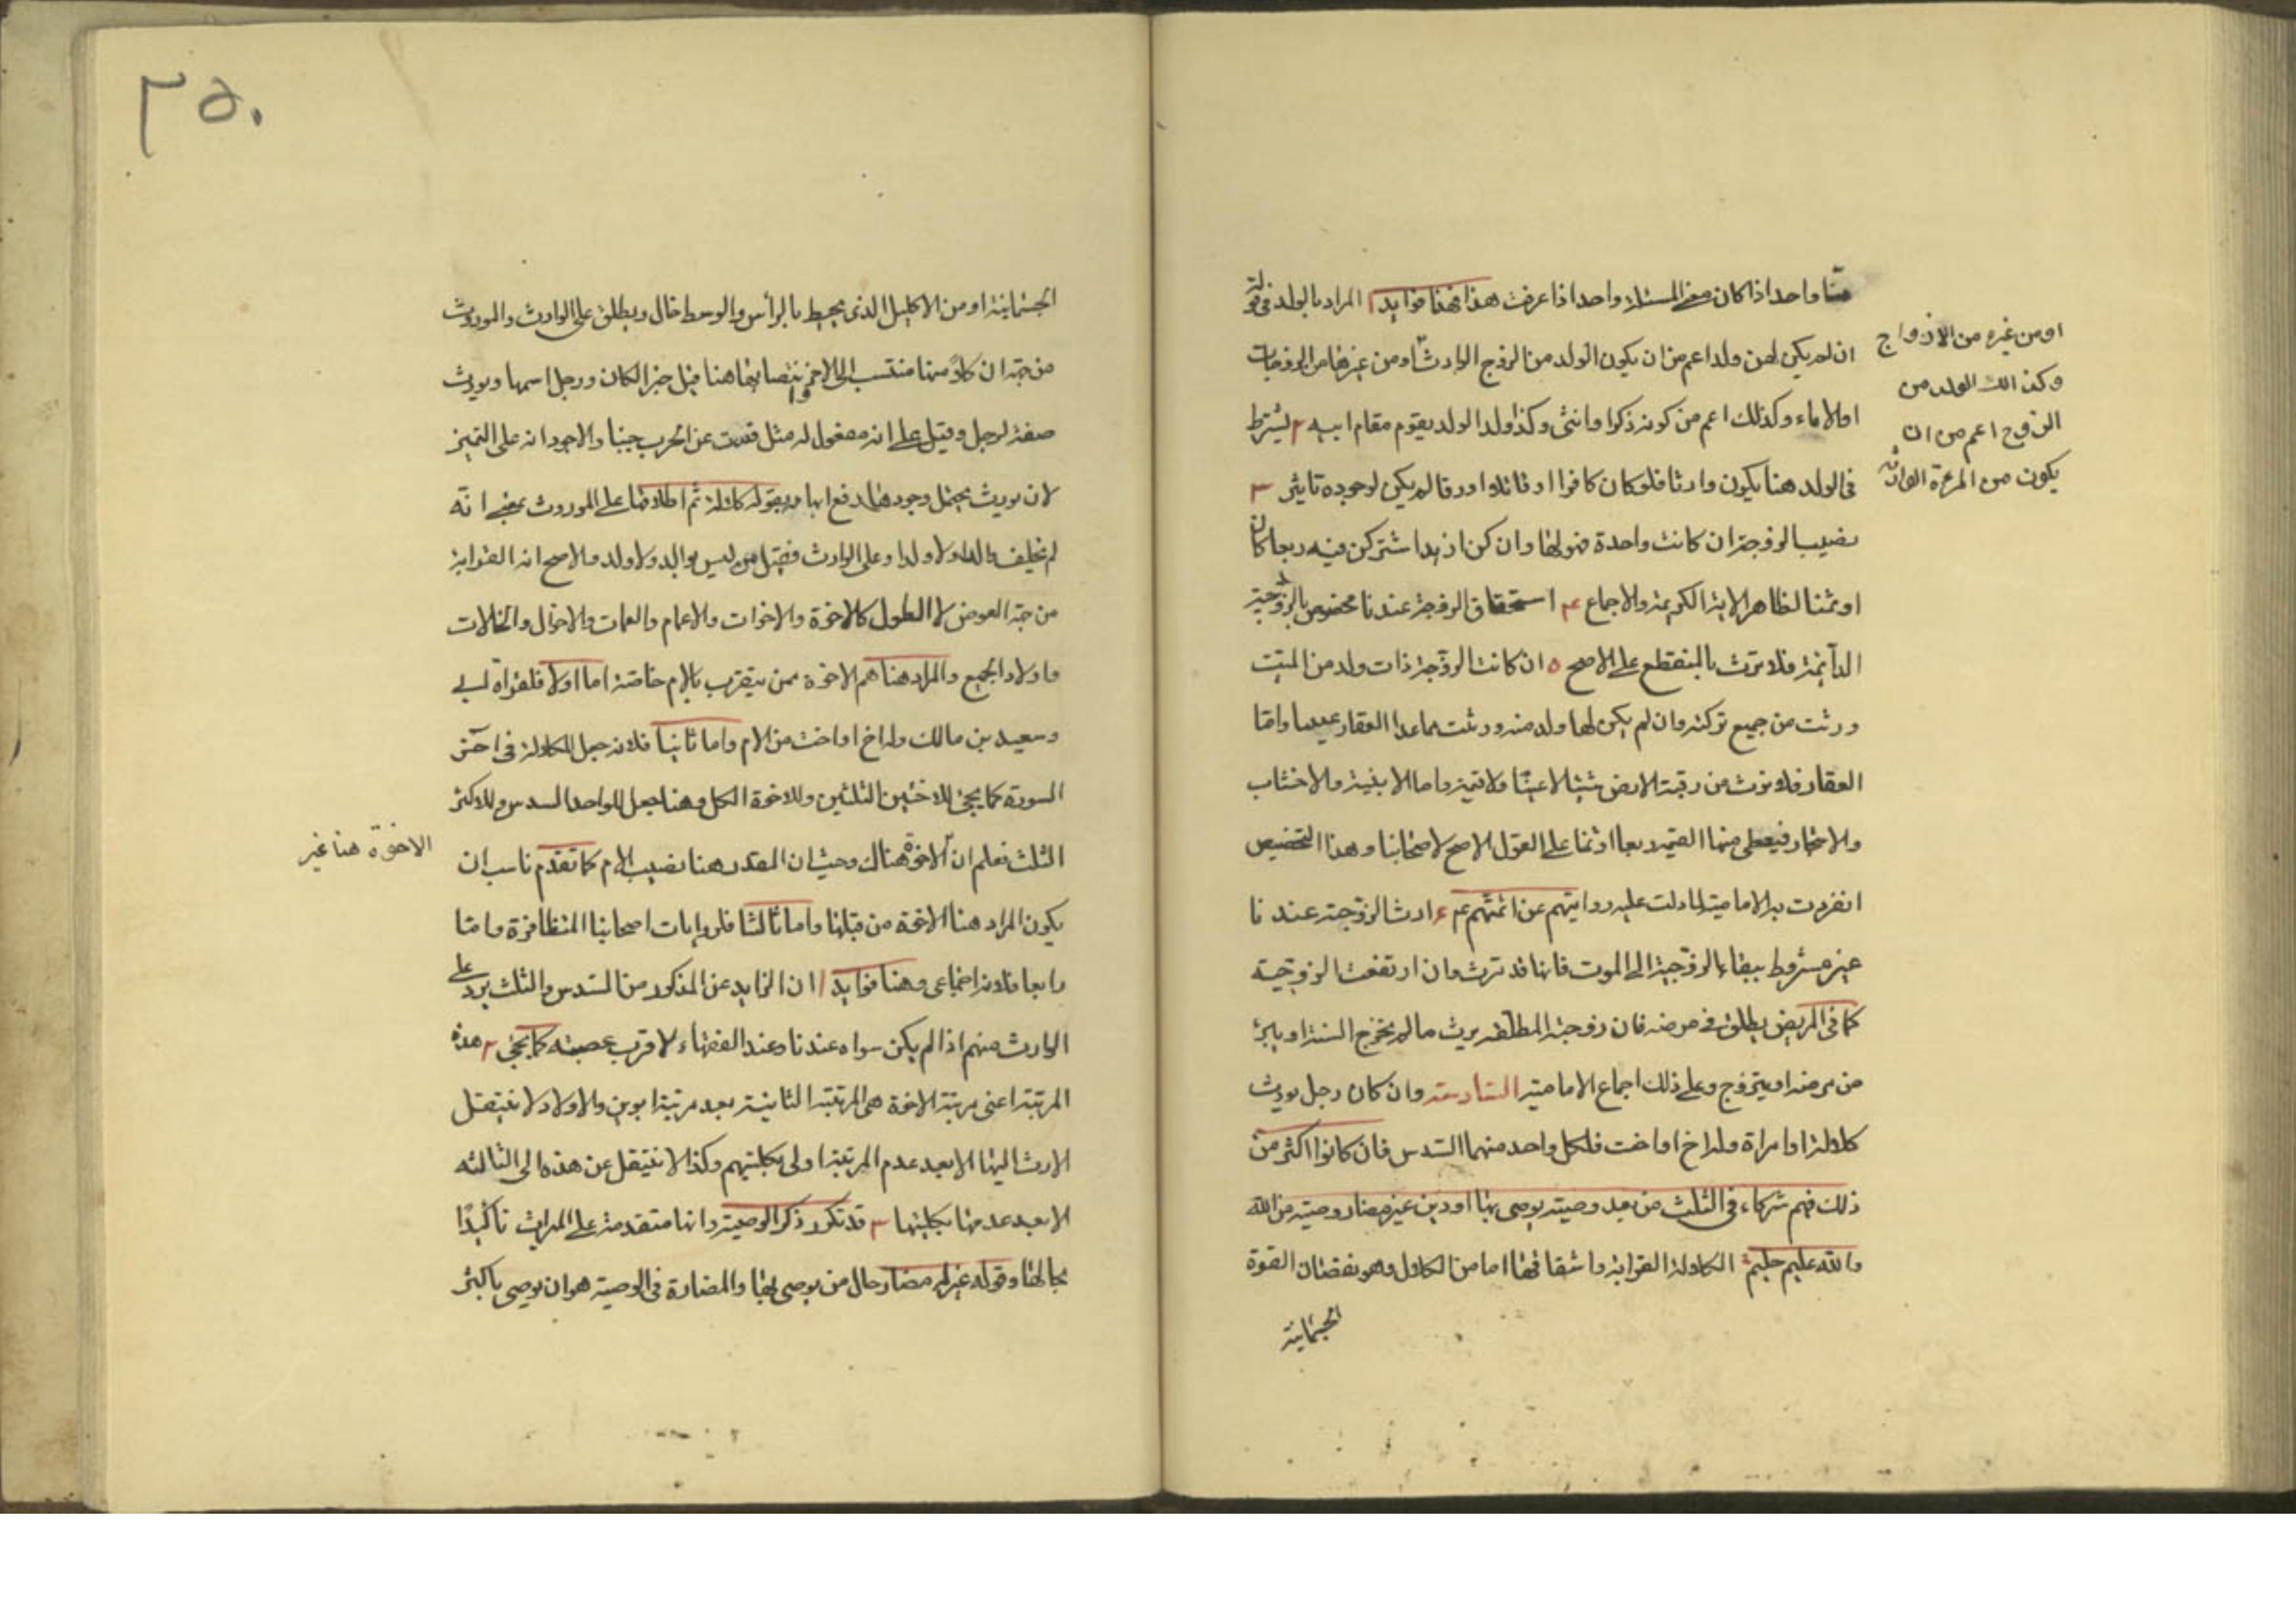 منا واحدا اذا كان معز المسئلة واحدا اذا عرفت هذا فهنا فوايد ا المراد بالولد في قوله
ان لم يكن لهن ولد اعم من ان يكون الولد من الزوج الوارث او من غيرها من الزوجات
او الاماء وكذلك اعم من كونه ذكرا وانثى وكذا ولد الولد يقوم مقام ابيه ٢ يشترط
في الولد هنا يكون وارثا فلو كان كافرا او قاتلا او رقا لم يكن لوجوده تاثير ٣
نصيب الزوجة ان كانت واحدة فهو لها وان كن ازيد اشتركن فيه ربعا كان
او ثمنا لظاهر الاية الكريمة والاجماع ۴ استحقاق الزوجة عندنا مخصوص بالزوجية
الدائمة فلا ترث بالمنقطع على الاصح ٥ ان كانت الزوجة ذات ولد من الميت
ورثت من جميع تركته وان لم يكن لها ولد منه ورثت مما عدا العقار عينا واما
العقار فلا ترث من رقبة الارض شيئا لا عينا ولا قيمة واما الابنية والاخشاب
والاحجار فيعطى منها القيمة ربعا او ثمنا على القول الاصح لاصحابنا وهذا التخصيص
انفردت به الامامية لما دلت عليه روايتهم عن ائمتهم عم ۶ ارث الزوجة عندنا
غير مشروط ببقاء الزوجية الى الموت فانها قد ترث وان ارتفعت الزوجية
كما في المريض يطلق في مرضه فان زوجته المطلقه يرث ما لم يخرج السنة او يبرء
من مرضه او يتزوج وعلى ذلك اجماع الامامية السادسة وان كان رجل يورث
كلالة او امراة وله اخ او اخت فلكل واحد منهما السدس فان كانوا اكثر من
ذلك فهم شركاء في الثلث من بعد وصية يوصى بها او دين غير مضار وصية من الله
والله عليم حليم الكلالة القرابة واشتقاقها اما من الكلال وهو نقصان القوة
الجسمانية
او من غيره من الازواج
وكذ الك الولد من
الزوج اعم من ان
يكون من المرءة الوارثه
٢٥٠
الجسمانية او من الاكليل الذى يحيط بالرأس والوسط خال ويطلق على الوارث والموروث
من جهة ان كلا منهما منتسب الى الاخر وانتصابها هنا قيل خبر الكان ورجل اسمها ويورث
صفة لرجل وقيل على انه مفعول له مثل قعدت عن الحرب جبنا والاجود انه على التميز
لان يورث يحتمل وجوها فدفع ابهامه بقوله كلالة ثم اطلاقها على الموروث بمعنى انه
لم يخلف والدا ولا ولدا وعلى الوارث فقيل من ليس بوالد ولا ولد والاصح انه القرابة
من جهة العرض لا الطول كالاخوة والاخوات والاعمام والعمات والاخوال والخالات
واولاد الجميع والمراد هنا هم الاخوة ممن يتقرب بالام خاصة اما اولا فلقراة ابي
وسعيد بن مالك وله اخ او اخت من الام واما ثانيا فلانه جعل للكلالة في اخر
السورة كما يجئ للاختين الثلثين وللاخوة الكل وهنا جعل للواحد السدس وللاكثر
الثلث فعلم ان الاخوة هناك وحيث ان المقدر هنا نصيب الام كما تقدم ناسب ان
يكون المراد هنا الاخوة من قبلها واما ثالثا فلروايات اصحابنا المتظافرة واما
رابعا فلانه اجماعى وهنا فوايد ا ان الزايد عن المذكور من السدس والثلث يرد على
الوارث منهم اذا لم يكن سواه عندنا وعند الفقهاء لاقرب عصبته كما يجئ ٢ هذه
المرتبة اعنى مرتبة الاخوة هى المرتبة الثانية بعد مرتبة ابوين والاولاد لا ينتقل
الارث اليها الا بعد عدم المرتبة اولى بكليتهم وكذا لا ينتقل عن هذه الى الثالثه
الا بعد عدمها بكليتها ٣ قد تكرر ذكر الوصية وانها متقدمة على الميراث تأكيدًا
بحالها وقوله غير مضار حال من يوصى بها والمضارة في الوصية هو ان يوصى باكثر
الاخوة هنا غير